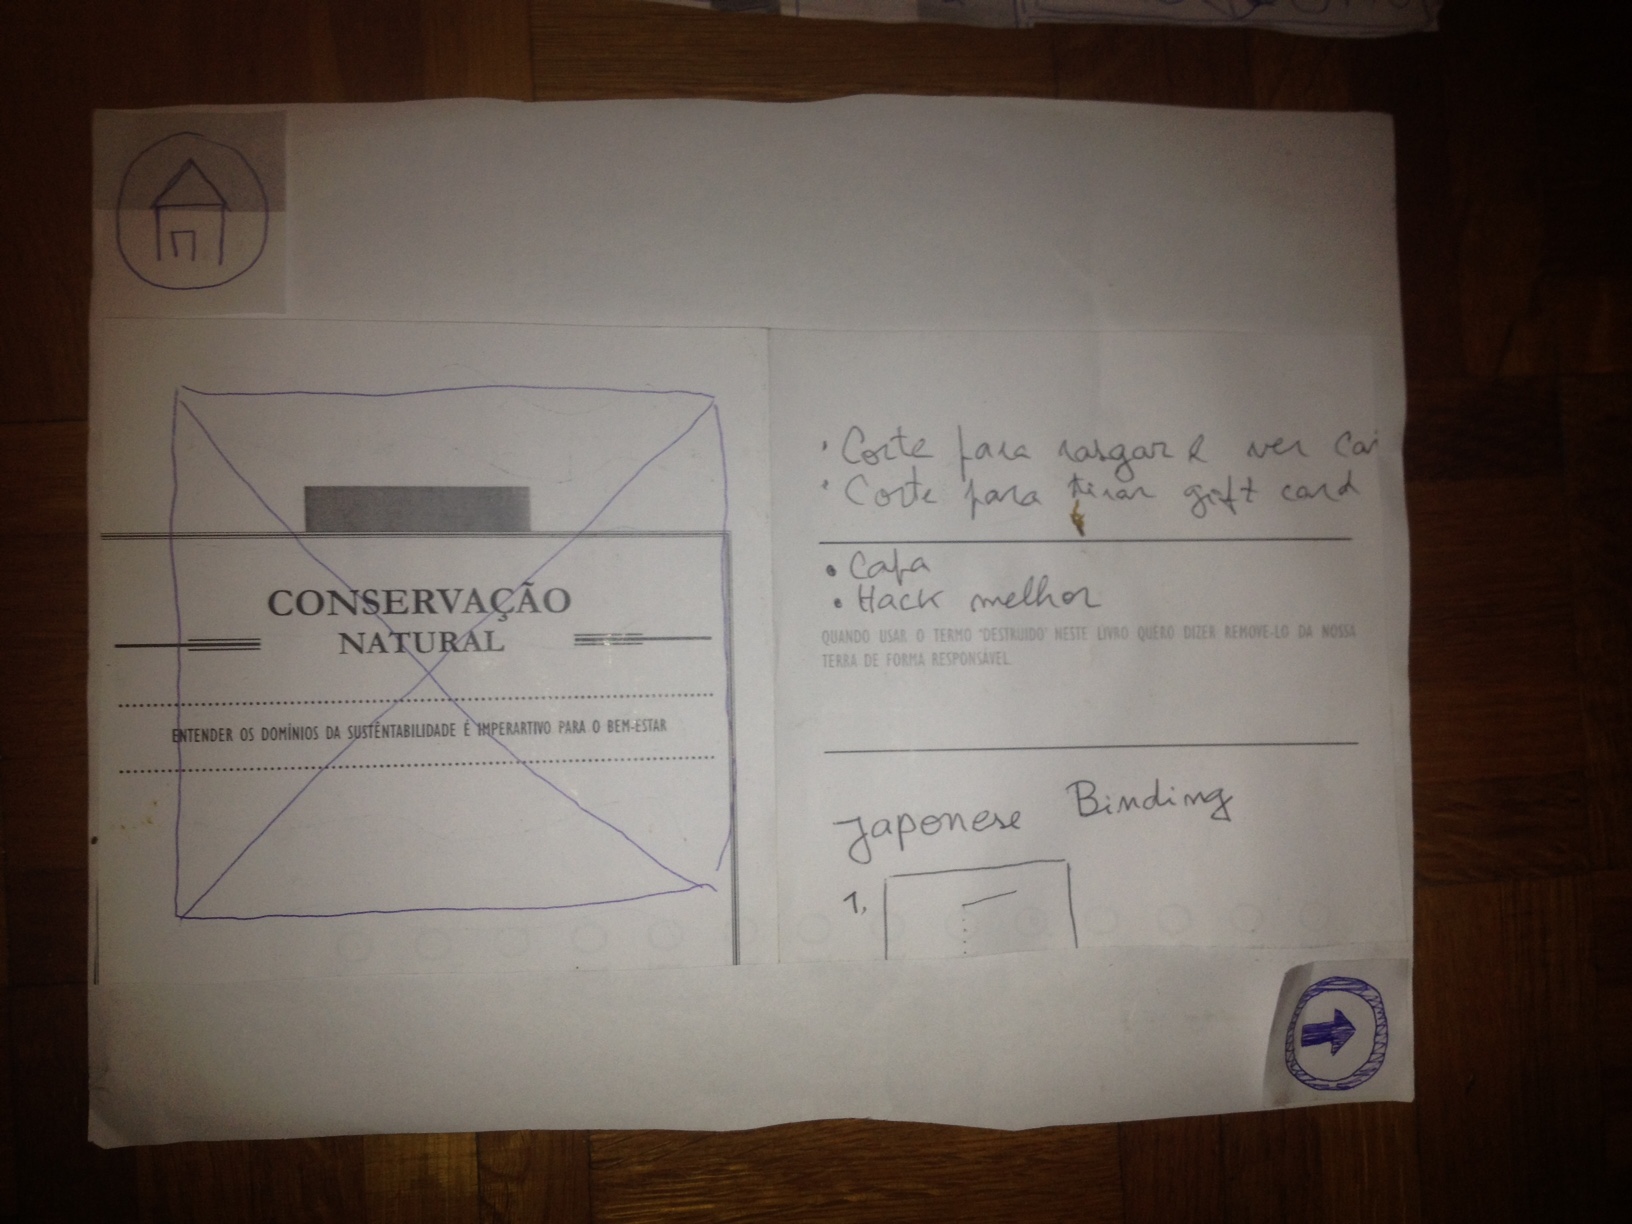 CONSERVAÇÃO
NATURAL
ENTENDER OS DOMÍNIOS DA SUSTENTABILIDADE É IMPERARTIVO PARA O BEM-ESTAR
· Corte para rasgar e ver
· Corte para tirar gift card
• Capa
• Hack melhor
QUANDO USAR O TERMO "DESTRUIDO" NESTE LIVRO QUERO DIZER REMOVE-LO DA NOSSA
TERRA DE FORMA RESPONSÁVEL.
Japonese Binding
1.